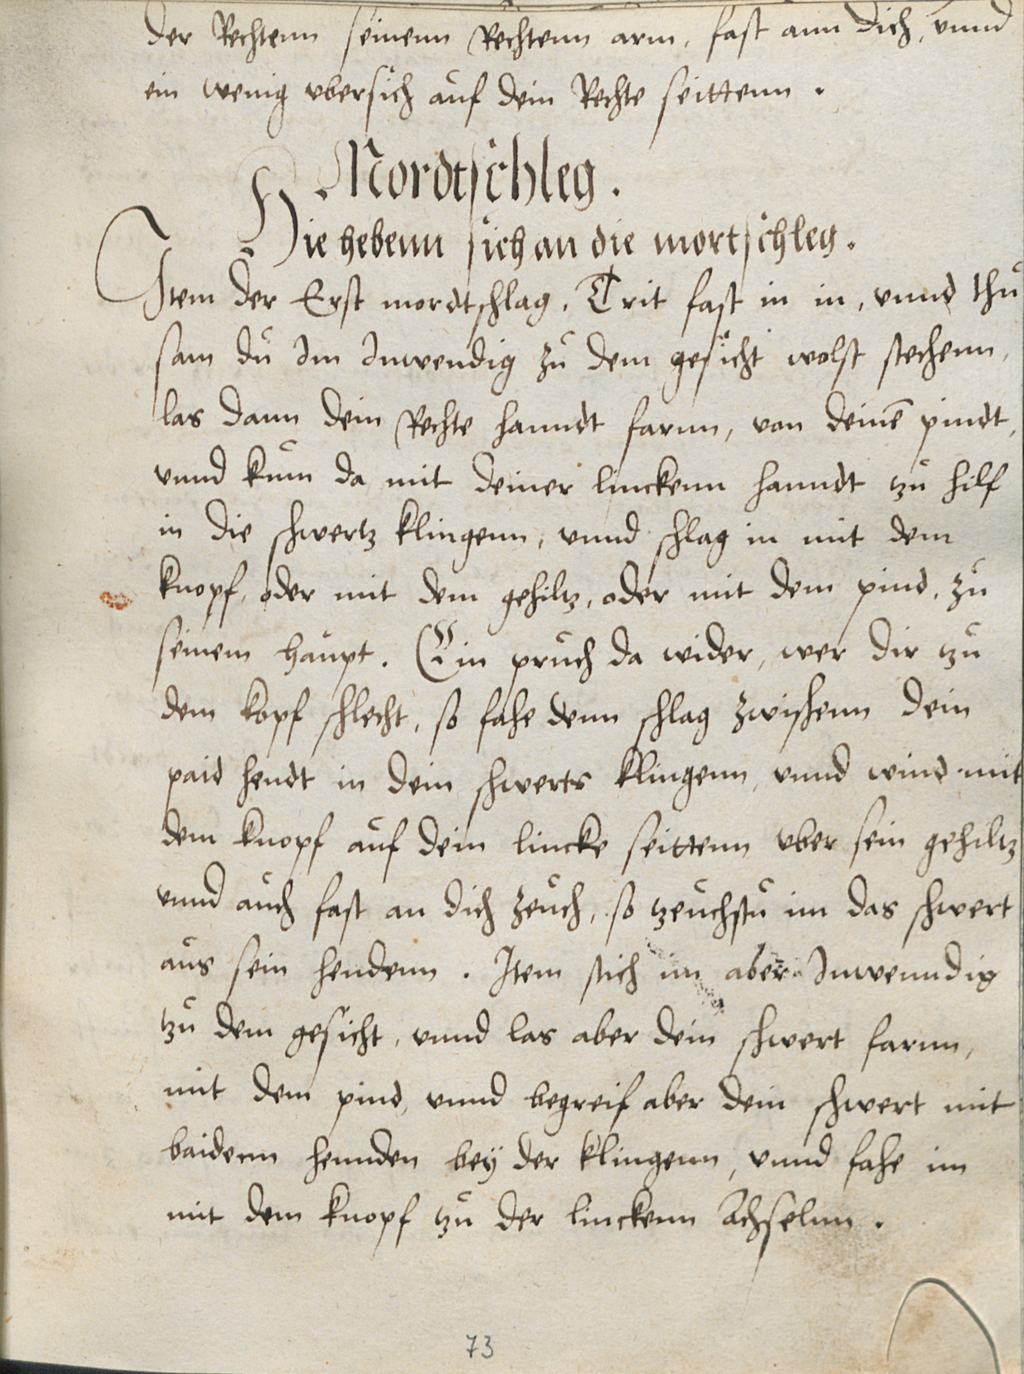 der Rechtenn seinenn Rechtenn arm, fast ann dich, vnnd
ein wenig vbersich auf dein Rechte seittenn .
Mordtschleg .
Hie hebenn sich an die mortschleg .
Item der Erst mordtschlag, Trit fast in in, vnnd thu
sam du Im Inwendig zu dem gesicht wolst stechenn,
las dann dein Rechte hanndt farnn, von deinē pindt,
vnnd kum da mit deiner linckenn hanndt tzu hilf
in die schwertz klingenn, vnnd schlag in mit dem
knopf, oder mit dem gehiltz, oder mit dem pind, zu
seinem haupt . Ein pruch da wider, wer dir tzu
dem kopf schlecht, so fahe denn schlag zwischenn dein
paid hendt in dein schwerts klingenn, vnnd wind mit
dem knopf auf dein lincke seittenn vber sein gehiltz
vnnd auch fast an dich zeuch, so tzeuchstu im das schwert
aus sein hendenn . Item stich im aber Inwenndig
tzu dem gesicht, vnnd las aber dein schwert farnn,
mit dem pind, vnnd begreif aber dein schwert mit
baidenn hennden beÿ der klingenn, vnnd fahe im
mit dem knopf tzu der linckenn Achselnn .
73